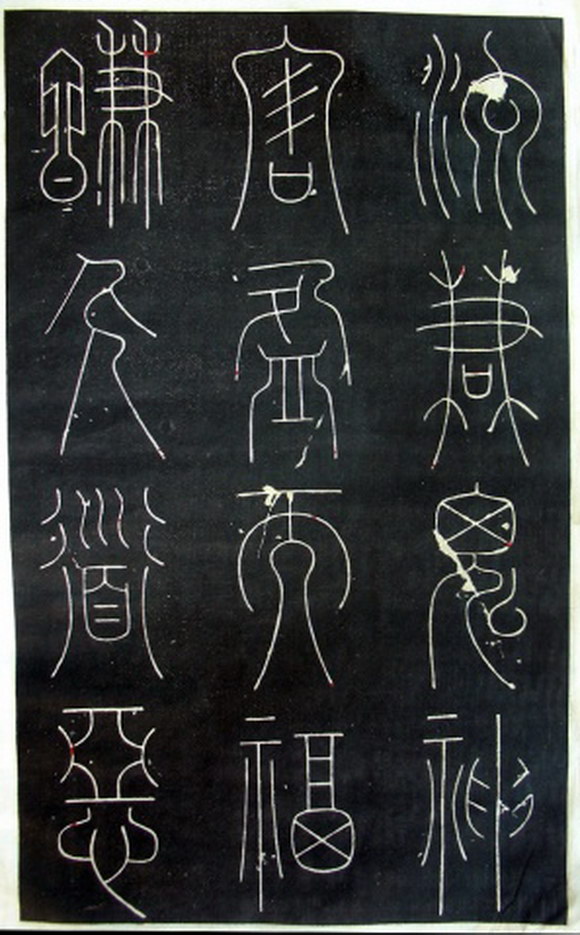 流謙鬼神
害盈而福
謙人道惡